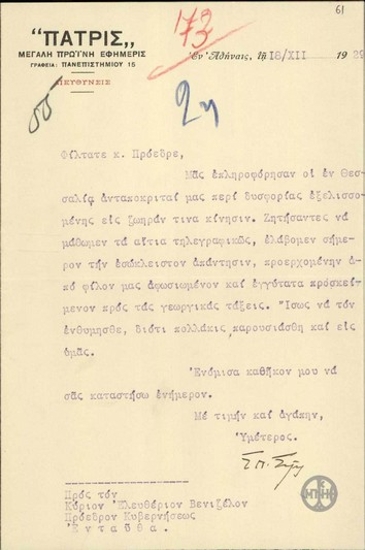 61
"ΠΑΤΡΙΣ,,
ΜΕΓΑΛΗ ΠΡΩΪΝΗ ΕΦΗΜΕΡΙΣ
ΓΡΑΦΕΙΑ: ΠΑΝΕΠΙΣΤΗΜΙΟΥ 15
ΔΙΕΥΘΥΝΣΙΣ
173
Ἐν Ἀθήναις, τῇ 18/XII 1929
Φίλτατε κ. Πρόεδρε,
Μᾶς ἐπληροφόρησαν οἱ ἐν Θεσ-
σαλίᾳ ἀνταποκριταί μας περί δυσφορίας ἐξελισσο-
μένης εἰς ζωηράν τινα κίνησιν. Ζητήσαντες νά
μάθωμεν τά αἴτια τηλεγραφικῶς, ἐλάβομεν σήμε-
ρον τήν ἐσώκλειστον ἀπάντησιν, προερχομένην ἀ-
πό φίλον μας ἀφωσιωμένον καί ἐγγύτατα προσκεί-
μενον πρός τάς γεωργικάς τάξεις. Ἴσως νά τόν
ἐνθυμῆσθε, διότι πολλάκις παρουσιάσθη καί εἰς
ὑμᾶς.
Ἐνόμισα καθῆκον μου νά
σᾶς καταστήσω ἐνήμερον.
Μέ τιμήν καί ἀγάπην,
Ὑμέτερος.
Πρός τόν
Κύριον Ἐλευθέριον Βενιζέλον
Πρόεδρον Κυβερνήσεως
Ἐνταῦθα.